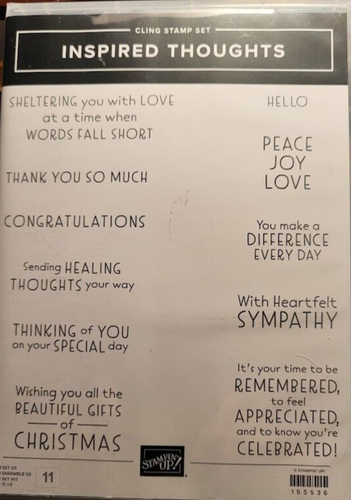 CLING STAMP SET
INSPIRED THOUGHTS
SHELTERING you with LOVE
at a time when
WORDS FALL SHORT
THANK YOU SO MUCH
CONGRATULATIONS
Sending HEALING
THOUGHTS your way
THINKING of YOU
on your SPECIAL day
Wishing you all the
BEAUTIFUL GIFTS
of
CHRISTMAS
HELLO
PEACE
JOY
LOVE
You make a
DIFFERENCE
EVERY DAY
With Heartfelt
SYMPATHY
It's your time to be
REMEMBERED,
to feel
APPRECIATED,
and to know you're
CELEBRATED!
SET OF
ENSEMBLE DE
11
STAMPIN' UP!
© STAMPIN' UP!
155536